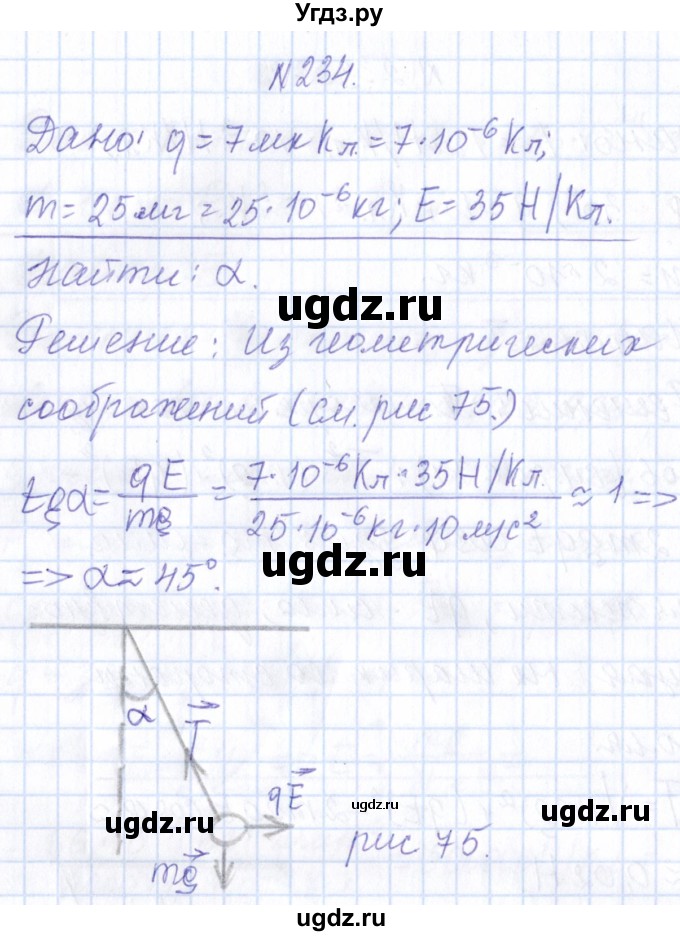 Угдз.ру
№234.
Дано: q = 7мкКл = 7·10⁻⁶Кл;
m = 25мг = 25·10⁻⁶кг; E = 35Н/Кл.
Найти: α.
ugdz.ru
Решение: Из геометрических
соображений (см. рис 75.)
tgα = qE/mg = 7·10⁻⁶Кл·35Н/Кл / 25·10⁻⁶кг·10м/с² ≈ 1 =>
ugdz.ru
=> α ≈ 45°.
α
T⃗
qE⃗
ugdz.ru
ugdz.ru
ugdz.ru
рис 75.
mg⃗
ugdz.ru